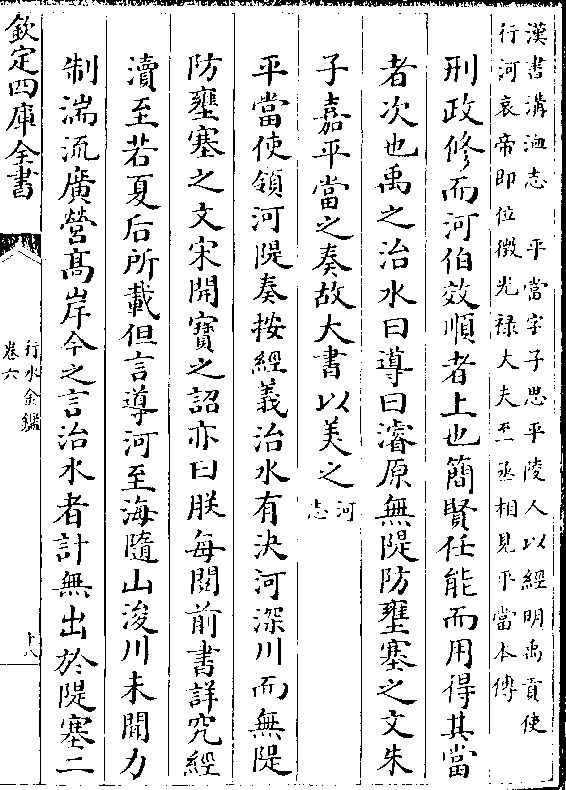 漢書溝洫志　平當字子思平陵人以經明禹貢使
行河哀帝即位徵光禄大夫至丞相見平當本傳
刑政修而河伯效順者上也簡賢任能而用得其當
者次也禹之治水曰導曰濬原無隄防壅塞之文朱
子嘉平當之奏故大書以美之河志
平當使領河隄奏按經義治水有決河深川而無隄
防壅塞之文宋開寶之詔亦曰朕每閲前書詳究經
瀆至若夏后所載但言導河至海隨山浚川未聞力
制湍流廣營高岸今之言治水者計無出於隄塞二
欽定四庫全書
行水金鑑
卷六
十八